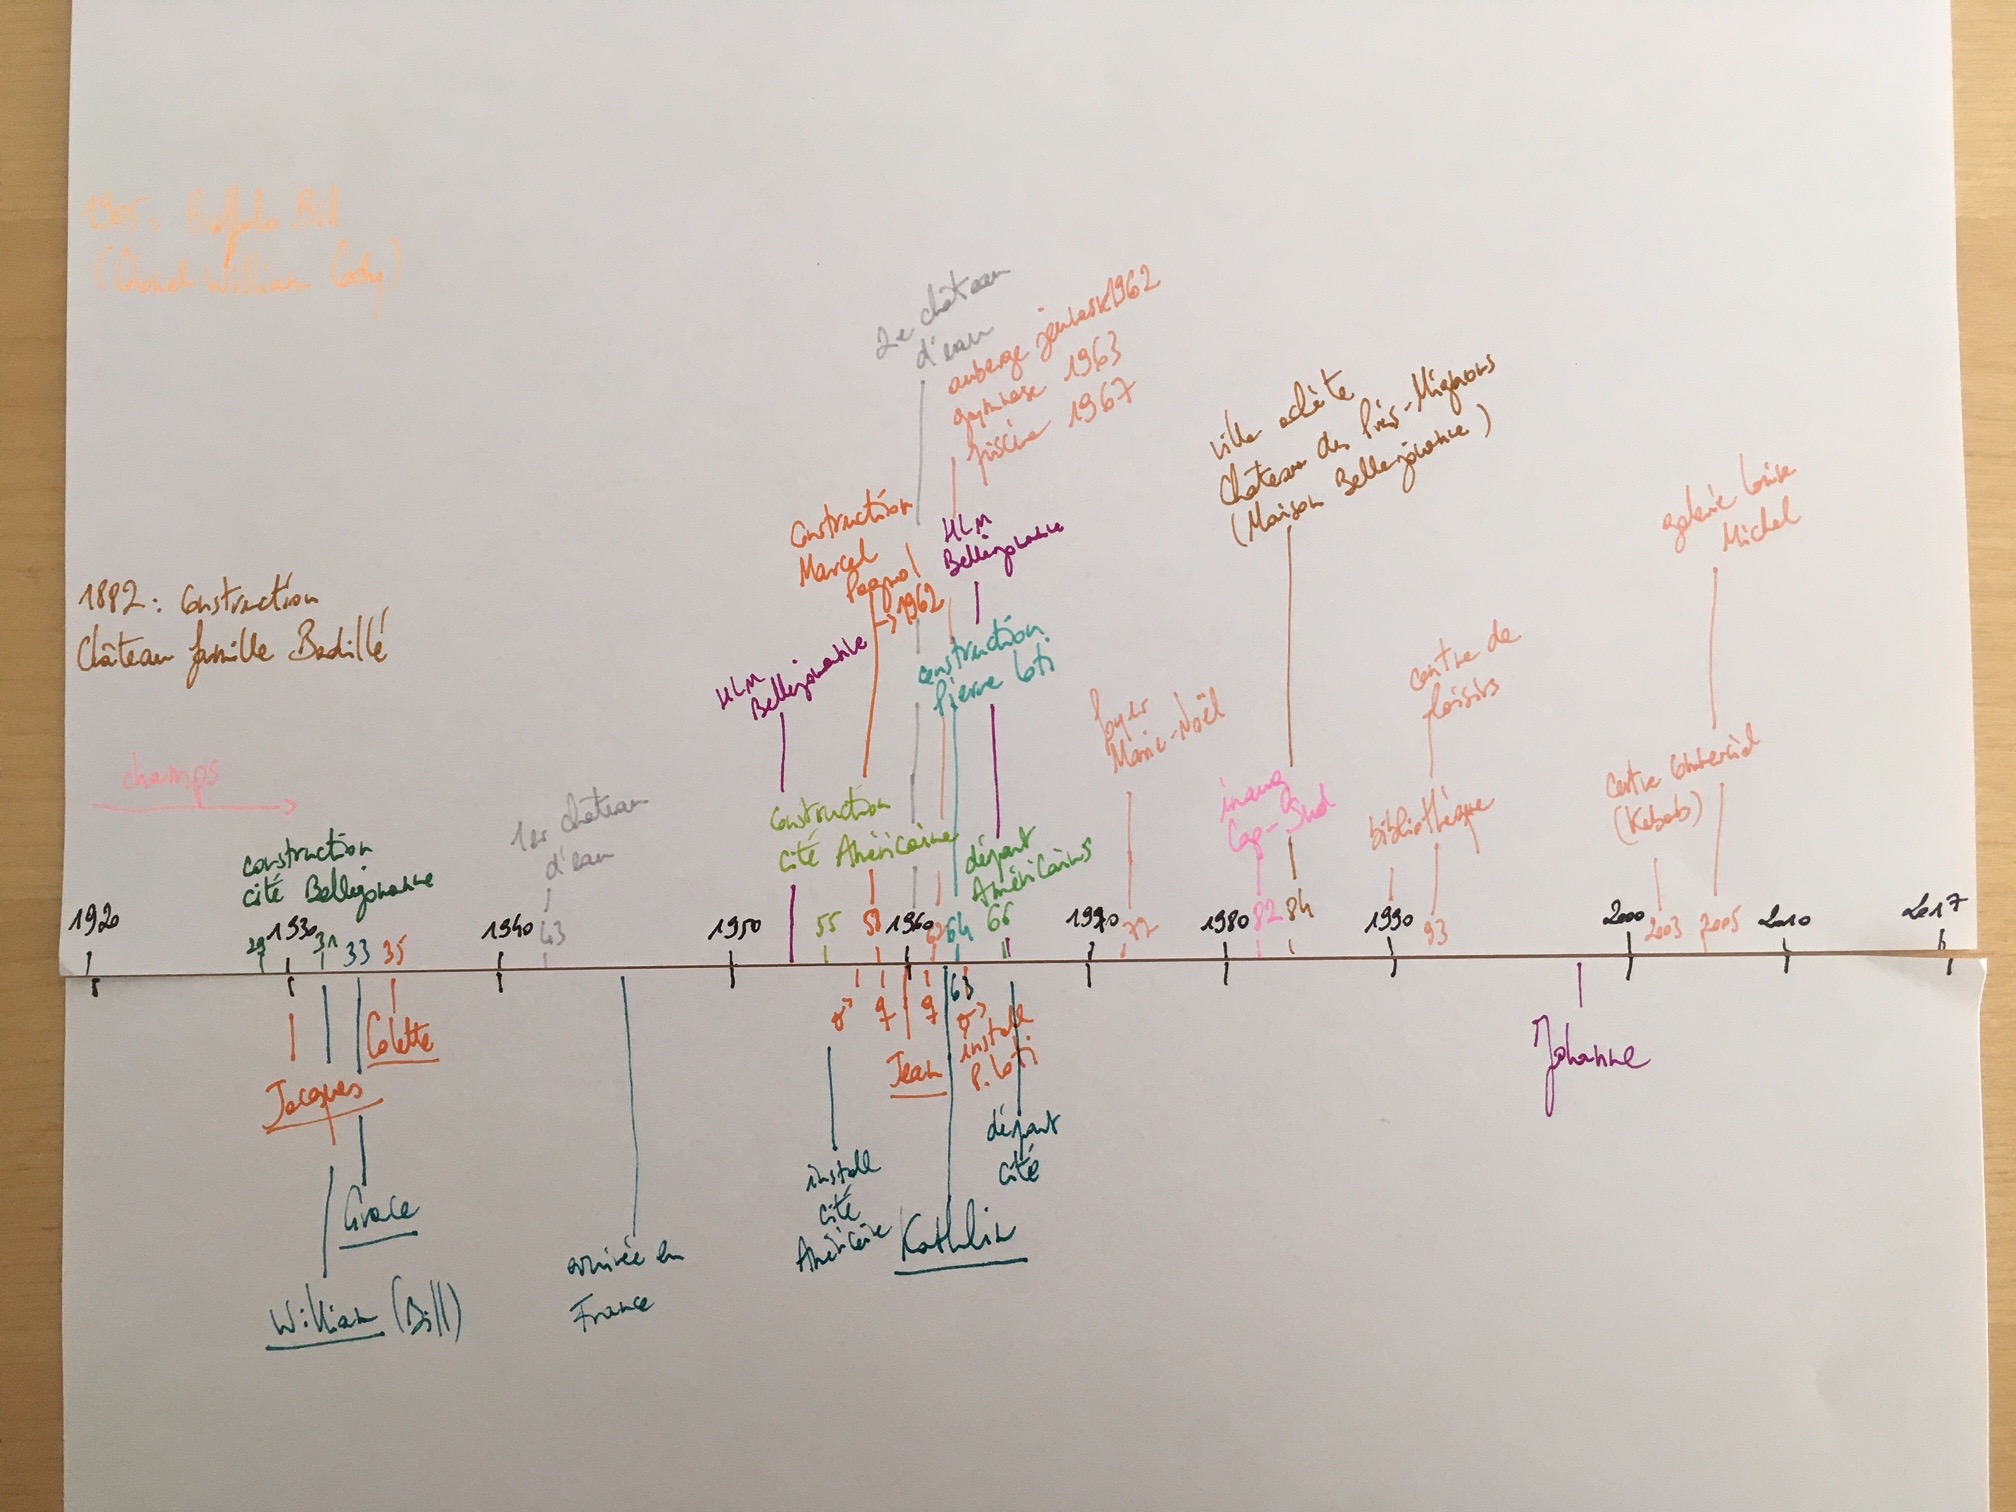 1905: Buffalo Bill
(Colonel William Cody)
2e château
d'eau
auberge jeunesse 1962
gymnase 1963
piscine 1967
ville achète
Château des Prés-Mignons
(Maison Bellejouanne)
galerie Louise
Michel
Construction
Marcel
Pagnol
→ 1962
HLM
Bellejouanne
1882: Construction
Château famille Badillé
HLM
Bellejouanne
construction
Pierre Loti
foyer
Marie-Noël
centre de
loisirs
champs
1er château
d'eau
construction
cité Américaine
départ
Américains
inaug
Cap-Sud
bibliothèque
centre commercial
(Kebab)
construction
cité Bellejouanne
1920 29 1930 31 33 35 1940 43 1950 55 58 1960 62 64 66 1970 72 1980 82 84 1990 93 2000 2003 2005 2010 2017
63
Colette
Jacques
Jean
install
P. Loti
Johanne
départ
cité
install
cité
Américaine
Grace
Kathlin
arrivée en
France
William (Bill)